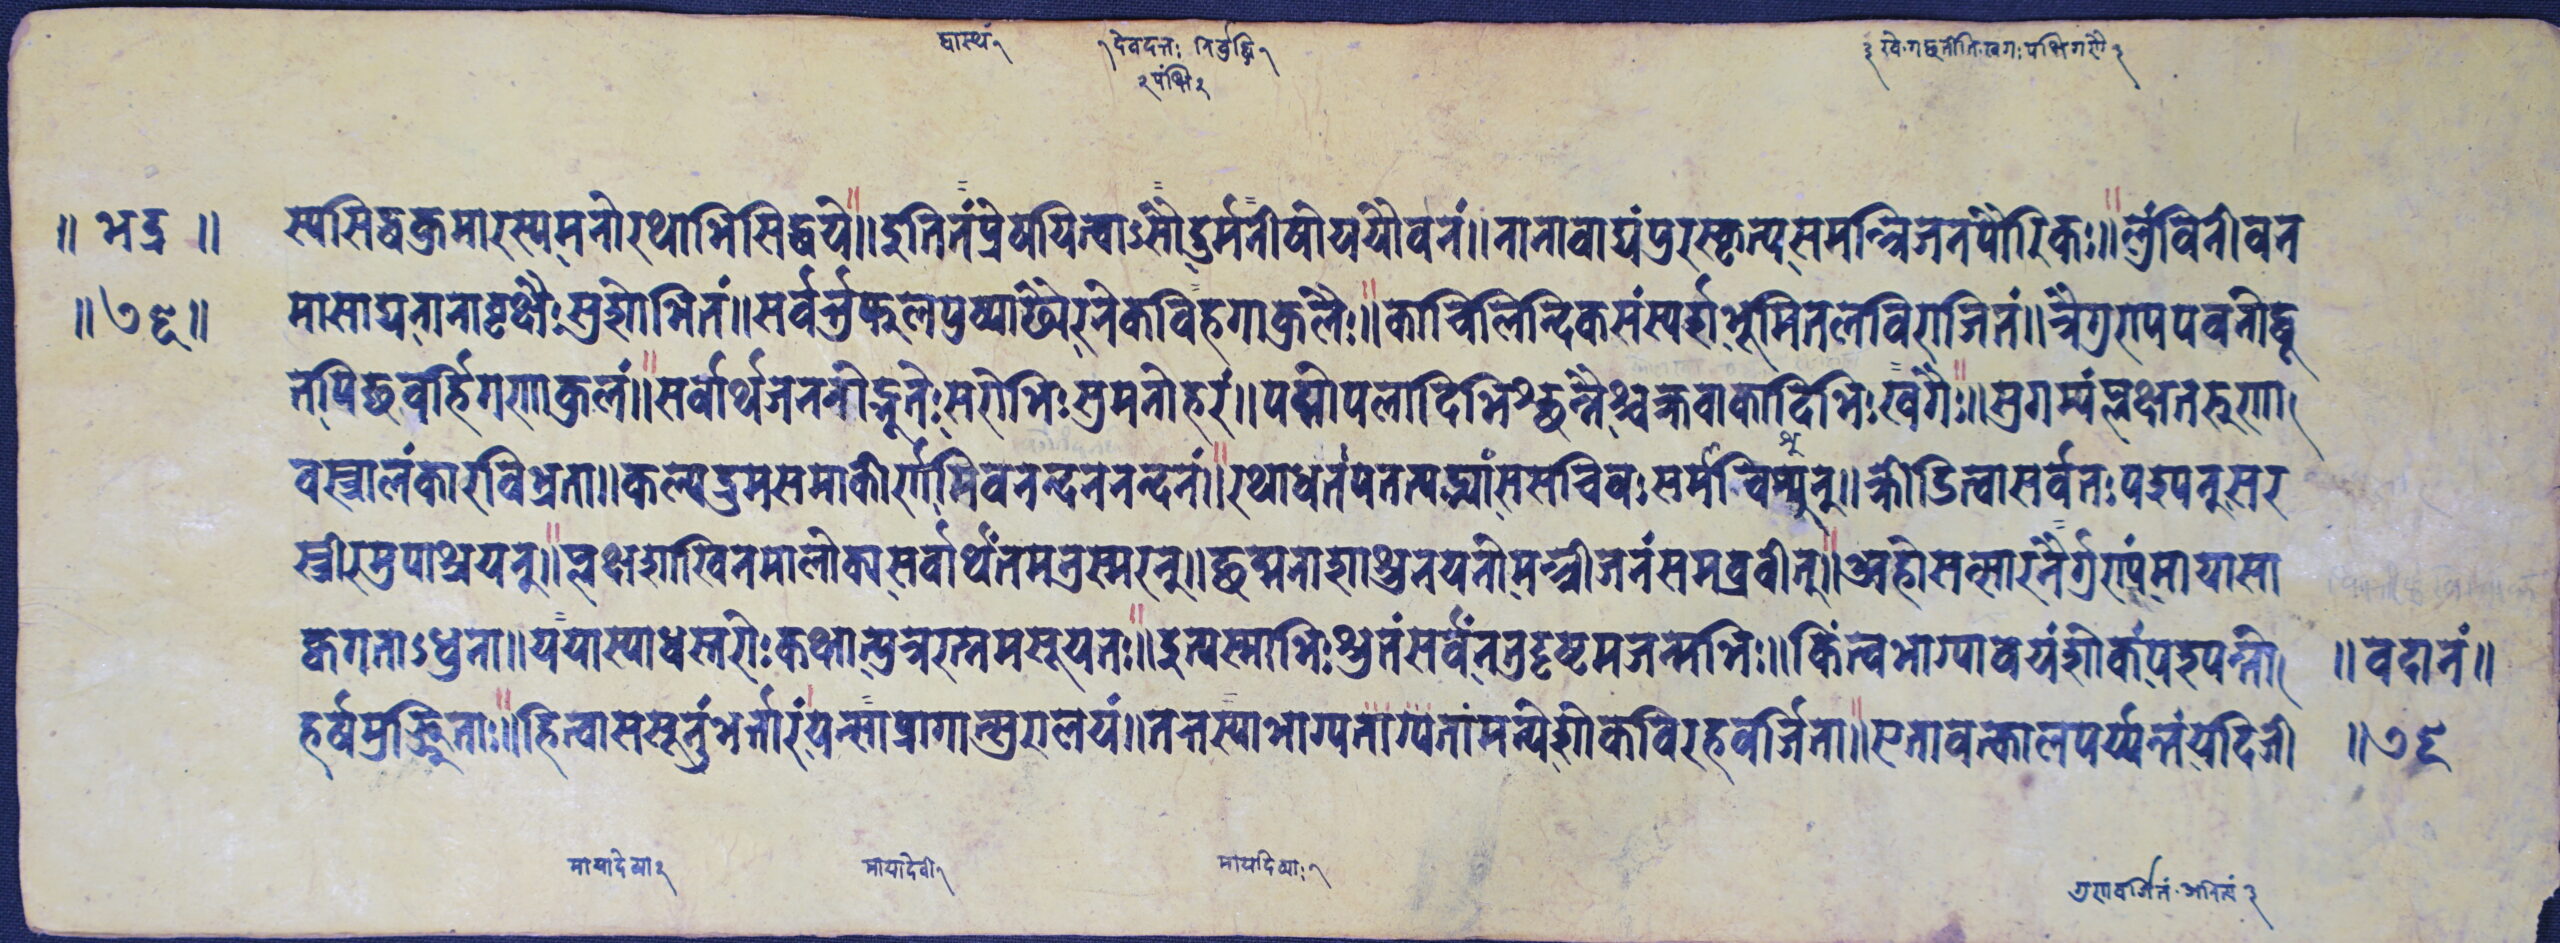 द्वास्थं १ १ देवदत्तः निर्बुद्धि १ ३ खे गच्छतीति खगः पक्षिगणैः ३
२ पंक्षि २
॥ भद्र ॥ स्यसिद्धकुमारस्यमनोरथाभिसिद्धये॥इतितंप्रेषयित्वाऽसौदुर्मनीषीययौवनं॥नानावाद्यंपुरस्कृत्यसमन्त्रिजनपौरिकः॥लुंविनीवन
॥७९॥ मासाद्यनानावृक्षैःसुशोभितं॥सर्वर्त्तुफुलपुष्पाढ्यैरनेकविहगाकुलैः॥काचिलिन्दिकसंस्पर्शभूमितलविराजितं॥त्रैगुण्यपवनोद्धू
तपिच्छवर्हिगणाकुलं॥सर्वार्थजननोद्भूतैःसरोभिःसुमनोहरं॥पद्मोपलादिभिश्छन्नैश्चक्रवाकादिभिःखगैः॥सुगम्यंप्लक्षतरुणा
वस्त्रालंकारविभ्रता॥कल्पद्रुमसमाकीर्णमिवनन्दननन्दनं॥रथाधतंपेतत्पद्भ्यांससचिवःसमन्त्रिभृत्॥क्रीडित्वासर्वतःपश्यन्सर
स्तीरमुपाश्रयन्॥प्लक्षशाखिनमालोक्यसर्वार्थंतमनुस्मरन्॥छद्मनाशाश्रुनयनोमन्त्रीजनंसमब्रवीत्॥अहोसत्सारनैर्गुण्यंमायासा
क्वगताऽधुना॥ययास्याधस्तरोःकक्षात्पुत्ररत्नमसूयत॥इत्यस्माभिःश्रुतंसर्वंनतुदृष्टमजन्मभिः॥किंत्वभाग्यावयंशोकंपश्यन्तो ॥वदानं॥
हर्षप्रच्छिताः॥हित्वाससूनुंभर्त्तारंयत्साप्रागात्सुरालयं॥तत्तस्याभाग्यताग्यतांमन्येशोकविरहवर्जिता॥एतावत्कालपर्य्यन्तंयदिजी ॥७९
मायादेव्या २ मायादेवी १ मायादेव्याः १
गुणवर्जितं अनित्यं ३